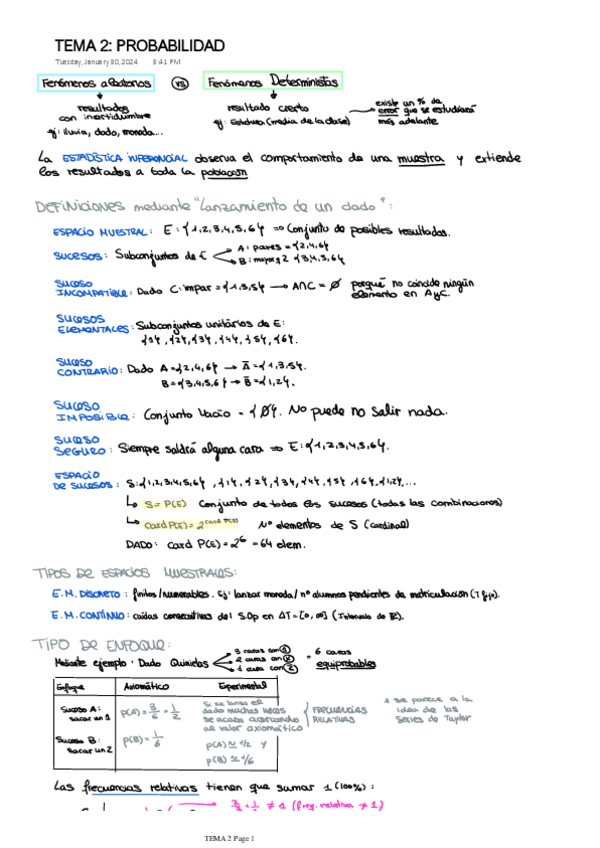 TEMA 2: PROBABILIDAD
Tuesday, January 30, 2024 3:41 PM
Fenómenos aleatorios vs Fenómenos Deterministas
resultados con incertidumbre
ej: lluvia, dado, moneda...
resultado cierto
ej: Estatura (media de la clase)
existe un % de error que se estudiará más adelante
La ESTADÍSTICA INFERENCIAL observa el comportamiento de una muestra y extiende
los resultados a toda la población
DEFINICIONES mediante "Lanzamiento de un dado":
ESPACIO MUESTRAL: E: {1,2,3,4,5,6} => Conjunto de posibles resultados.
SUCESOS: Subconjuntos de E
A: pares = {2,4,6}
B: mayor q 2 {3,4,5,6}
SUCESO INCOMPATIBLE: Dado C: impar = {1,3,5} → A∩C = Ø porqué no coincide ningún elemento en A y C.
SUCESOS ELEMENTALES: Subconjuntos unitários de E:
{1}, {2}, {3}, {4}, {5}, {6}.
SUCESO CONTRARIO: Dado A = {2,4,6} → Ā = {1,3,5}.
B = {3,4,5,6} → B̄ = {1,2}.
SUCESO IMPOSIBLE: Conjunto Vacío = {Ø}. No puede no salir nada.
SUCESO SEGURO: Siempre saldrá alguna cara => E: {1,2,3,4,5,6}.
ESPACIO DE SUCESOS: S: {1,2,3,4,5,6}, {1}, {2}, {3}, {4}, {5}, {6}, {1,2}, ...
S = P(E) Conjunto de todos los sucesos (todas las combinaciones)
Card P(E) = 2 Nº elementos de S (cardinal)
DADO: card P(E) = 2^6 = 64 elem.
TIPOS DE ESPACIOS MUESTRALES:
E.M. DISCRETO: finitos/numerables. Ej: lanzar moneda / nº alumnos pendientes de matriculación
E.M. CONTÍNUO: caídas consecutivas del S.Op en ΔT = [0, ∞] (Intervalo de R).
TIPO DE ENFOQUE:
Mediante ejemplo: Dado Quinielas
3 caras con 1
2 caras con X
1 cara con 2
= 6 caras equiprobables
Enfoque Axiomático Experimental
Suceso A: sacar un 1 P(A) = 3/6 = 1/2
Suceso B: sacar un 2 P(B) = 1/6
Si se lanza el dado muchas veces se acaba acercando al valor axiomático
P(A) ≃ 1/2 y
P(B) ≃ 1/6
FRECUENCIAS RELATIVAS
se parece a la idea de las Series de Taylor
Las frecuencias relativas tienen que sumar 1 (100%):
≠ 1 (freq. relativa ≠ 1)
TEMA 2 Page 1